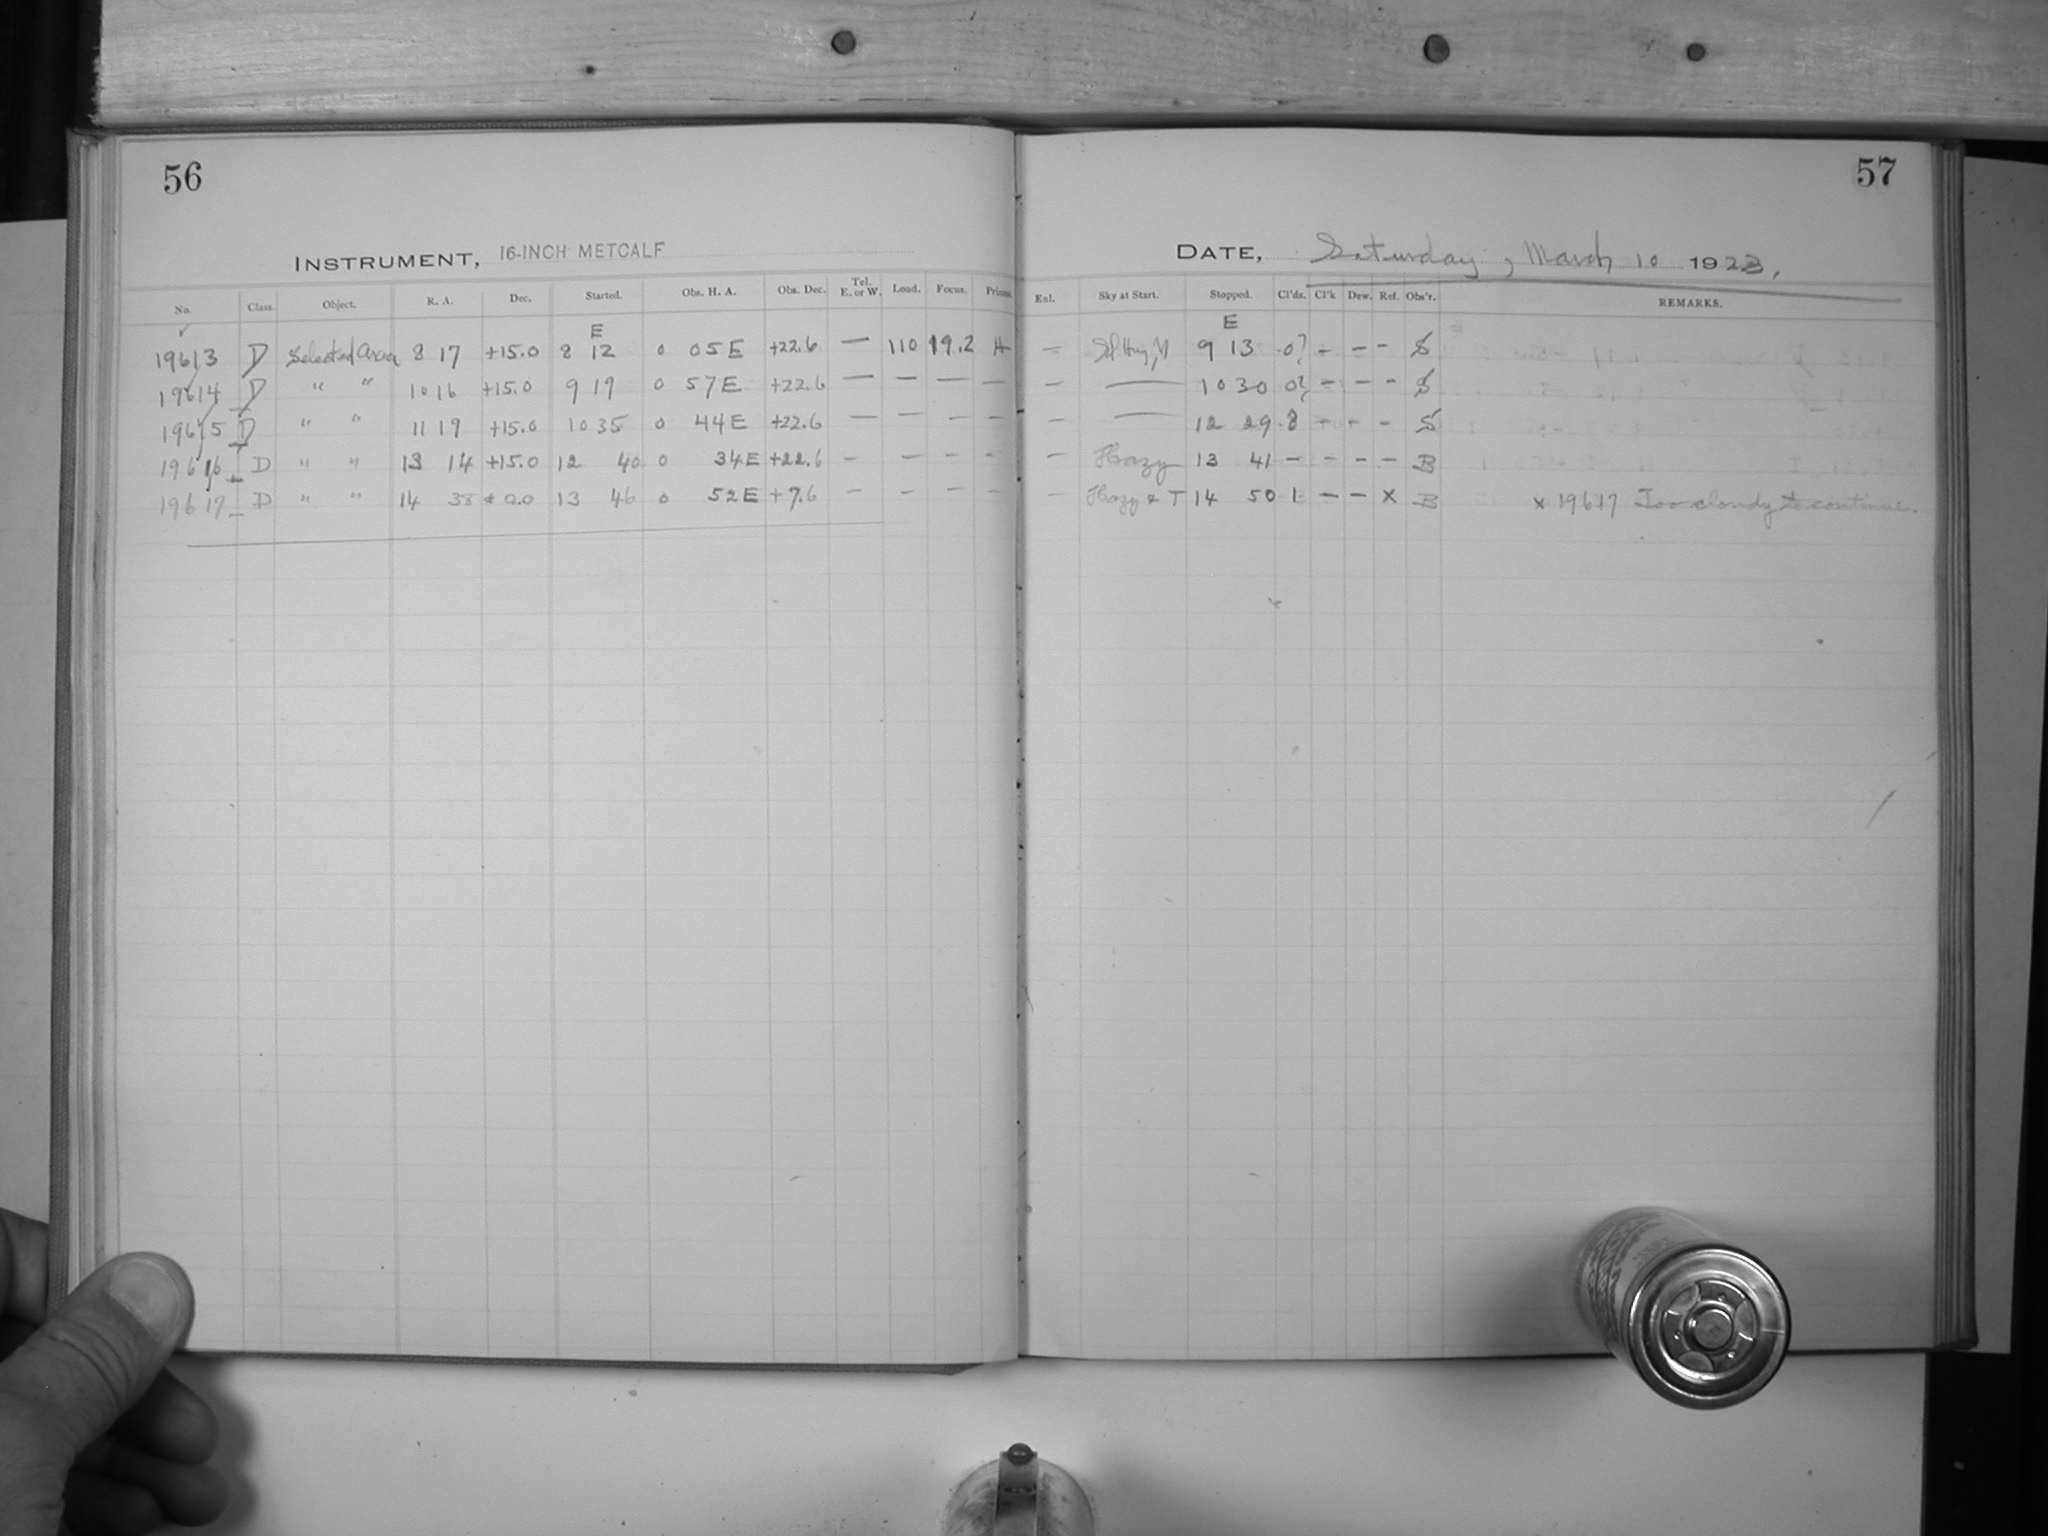 56
57
INSTRUMENT, 16-INCH METCALF
DATE, Saturday, March 10 1923,
No. Class. Object. R. A. Dec. Started. Obs. H. A. Obs. Dec. Tel. E. or W. Load. Focus. Prisms. Enl. Sky at Start. Stopped. Cl'ds. Cl'k Dew. Ref. Obs'r. REMARKS.
E E
19613 D Selected Area 8 17 +15.0 8 12 0 05 E +22.6 — 110 19.2 — 9 13 0? - - - S
19614 D " " 10 16 +15.0 9 19 0 57 E +22.6 — — — — — — 10 30 0? - - - S
19615 D " " 11 19 +15.0 10 35 0 44 E +22.6 — — — — — — 12 29 8 - - - S
19616 D " " 13 14 +15.0 12 40 0 34 E +22.6 — — — — — Hazy 13 41 - - - - B
19617 D " " 14 38 0.0 13 46 0 52 E +7.6 — — — — — Hazy & T 14 50 1 - - x B x 19617 Too cloudy to continue.